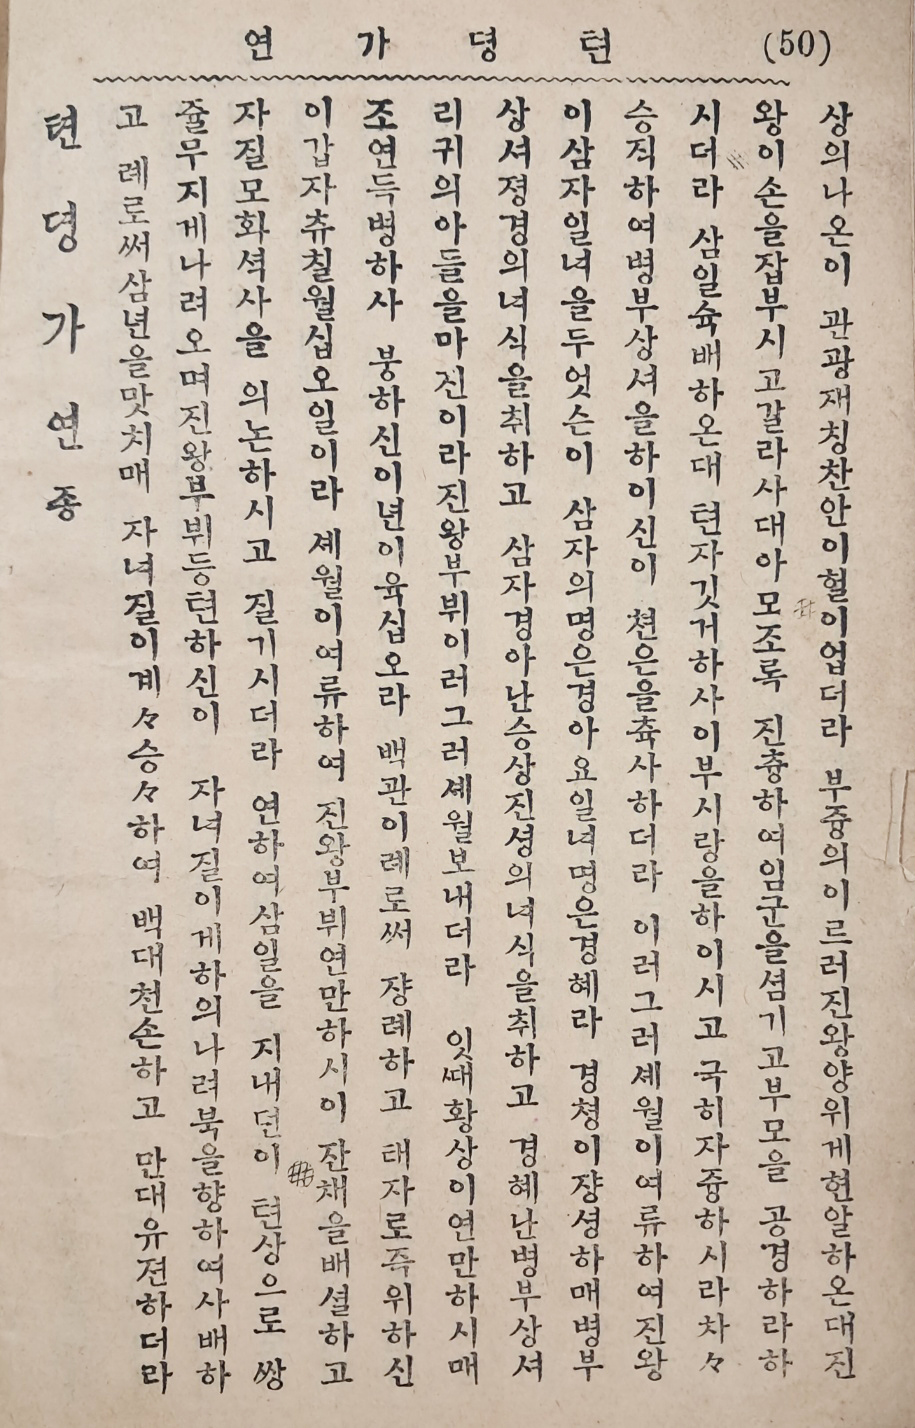 (50) 텬뎡가연
상의나온이 관광재칭찬안이헐이업더라 부즁의이르러진왕양위게현알하온대진
왕이손을잡부시고갈라사대아모조록 진츙하여임군을셤기고부모을 공경하라하
시더라 삼일슉배하온대 텬자깃거하사이부시랑을하이시고국히자즁하시라차々
승직하여병부상셔을하이신이 쳔은을츅사하더라 이러그러셰월이여류하여진왕
이삼자일녀을두엇슨이 삼자의명은경아요일녀명은경혜라 경쳥이쟝셩하매병부
상셔졍경의녀식을취하고 삼자경아난승상진셩의녀식을취하고 경혜난병부상셔
리귀의아들을마진이라진왕부뷔이러그러셰월보내더라 잇때황상이연만하시매
조연득병하사 붕하신이년이육십오라 백관이례로써 쟝례하고 태자로즉위하신
이갑자츄칠월십오일이라 셰월이여류하여 진왕부뷔연만하시이 잔채을배셜하고
자질모화셕사을 의논하시고 질기시더라 연하여삼일을 지내던이 텬상으로 쌍
쥴무지게나려오며진왕부뷔등텬하신이 자녀질이게하의나려북을향하여사배하
고 례로써삼년을맛치매 자녀질이계々승々하여 백대천손하고 만대유젼하더라
텬뎡가연종